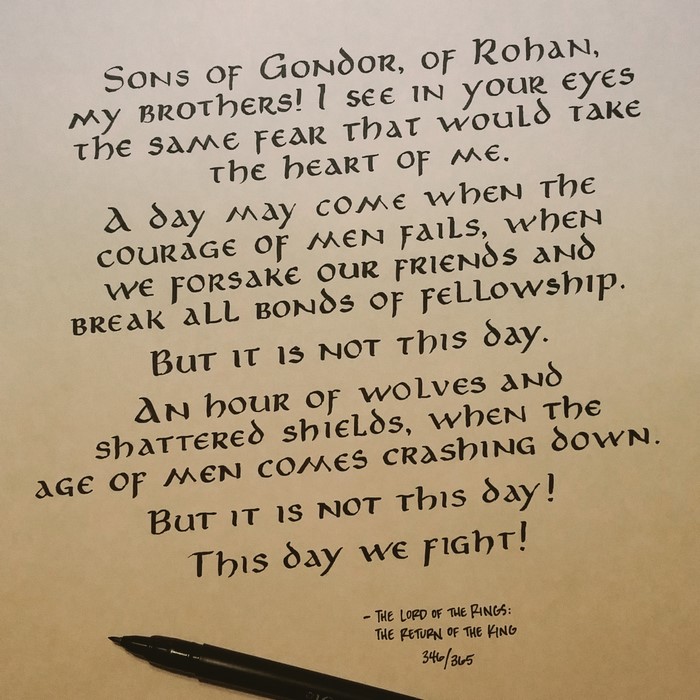 Sons of Gondor, of Rohan,
my brothers! I see in your eyes
the same fear that would take
the heart of me.
A day may come when the
courage of men fails, when
we forsake our friends and
break all bonds of fellowship.
But it is not this day.
An hour of wolves and
shattered shields, when the
age of men comes crashing down.
But it is not this day!
This day we fight!
- The Lord of the Rings:
The Return of the King
346/365